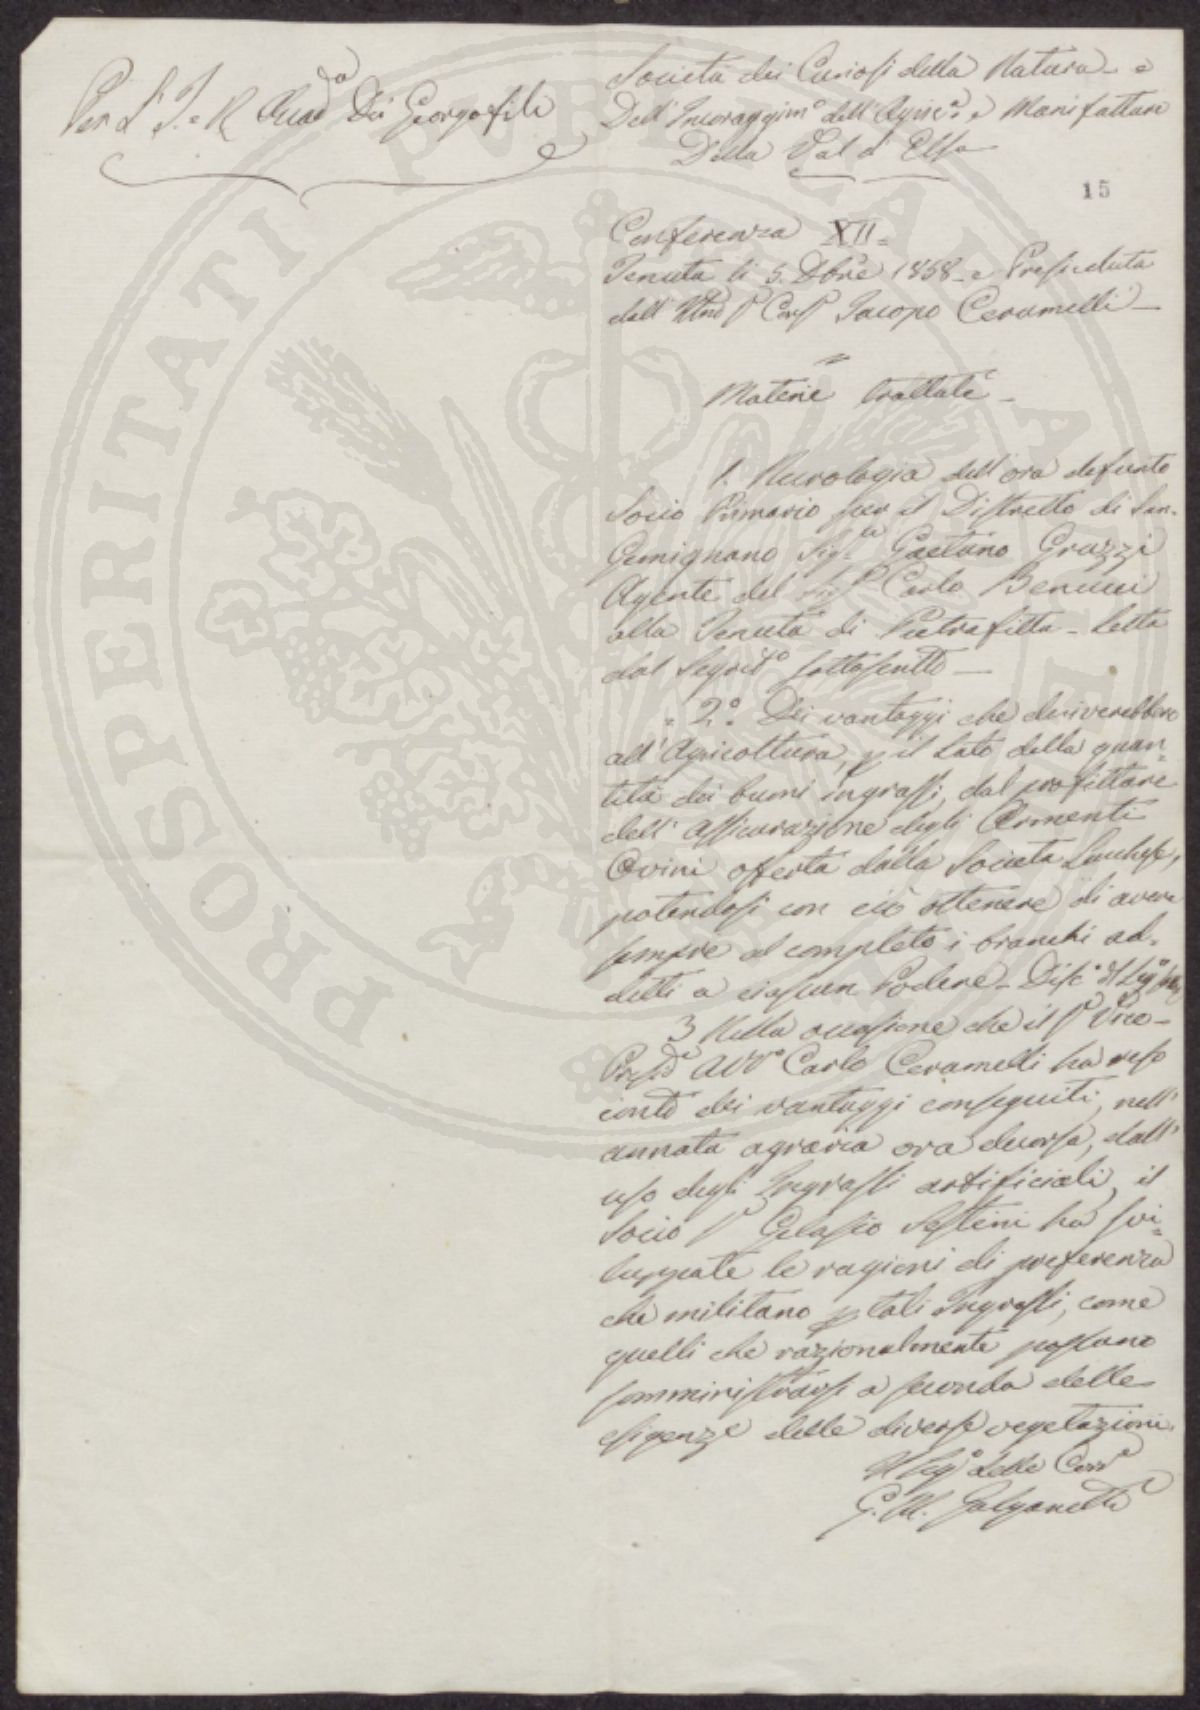 Per l'I. e R. Accad.a Dei Georgofili
Società dei Curiosi della Natura e
Dell'Incoraggim.o dell'Agric.a e Manifatture
Della Val d'Elsa
15
Conferenza XII
Tenuta li 5. Dbre 1858 e Presieduta
dall' Sr Conf Jacopo Ceramelli
Materie trattate
1. Necrologia dell'ora defunto
Socio Primario per il Distretto di San
Gemignano Sig.re Gaetano Grazzi
Agente del Sig.r Carlo Benucci
alla Tenuta di Pietrafitta - Letta
dal Segret.o sottoscritto
2.o Dei vantaggi che deriverebbero
all'Agricoltura, p il lato della quan-
tità dei buoni ingrassi, dal profittare
dell'Assicurazione degli Armenti
Ovini offerta dalla Società Lucchese,
potendosi con ciò ottenere di avere
sempre al completo i branchi ad-
detti a ciascun Podere - Disc.o
3 Nella occasione che il Sr Vice-
Presid.e Avv.o Carlo Ceramelli ha reso
conto dei vantaggi conseguiti, nell'
annata agraria ora decorsa, dall'
uso degli Ingrassi artificiali, il
Socio Sr Gelasio Sestini ha svi-
luppate le ragioni di preferenza
che militano p tali Ingrassi, come
quelli che razionalmente possano
somministrarsi a seconda delle
esigenze delle diverse vegetazioni.
Il Seg.o delle Corr.e
G. M. Galganetti
PROSPERITATI PUBLICAE AUGENDAE